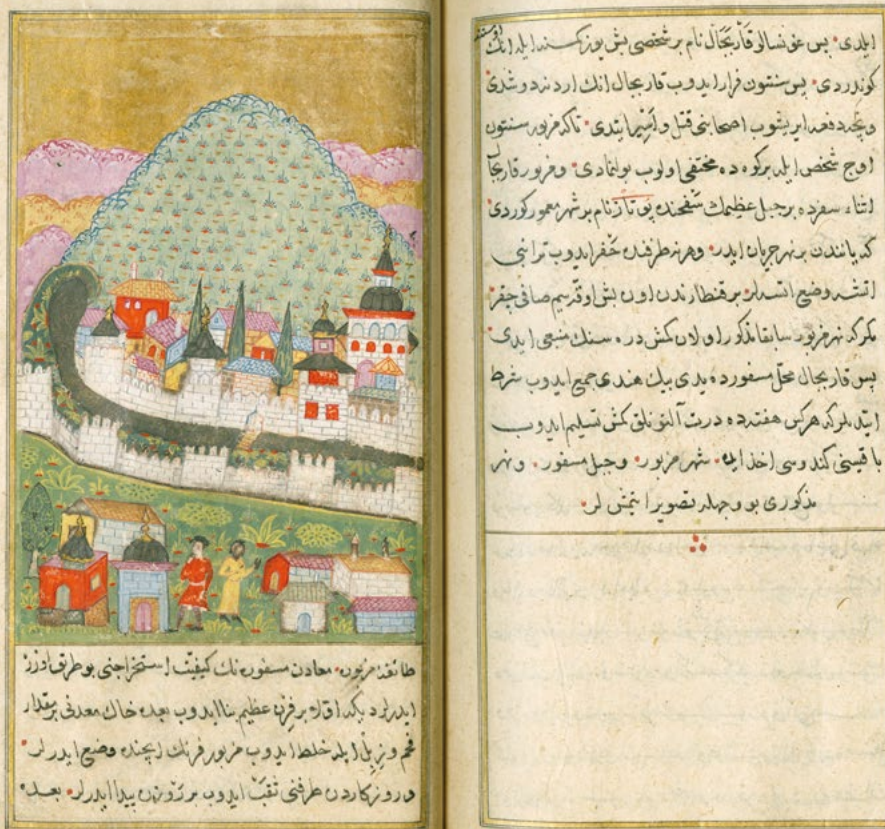 ایلدی پس غونسالو قاربجال نام بر شخصی بش یوز کسنه ایله انك اوستنه
کوندردی پس سنتون فرار ایدوب قاربجال انك اردنه دوشدی
دفعه ایریشوب اصحابنی قتل و اسیر ایتدی تاکه مزبور سنتون
اوچ شخص ایله بر کوه ده مختفی اولوب بولنمادی و مزبور قاربجال
اثناء سفرده بر جبل عظیمك سفحنده پوتاز نام بر شهر معمور کوردی
که یانندن بر نهر جریان ایدر و هر نه طرفنده حفر ایدوب ترابنی
اتشه وضع اتسه لر بر قنطارندن اون بش اوقه سیم صافی چقر
مکر که نهر مزبور سابقا مذکور اولان کمش دره سنك منبعی ایدی
پس قاربجال محل مسفورده یدی بیك هندی جمع ایدوب شرط
ایتدیلر که هر کس هفته ده درت آلتونلق کمش تسلیم ایدوب
باقیسنی کندوسی اخذ ایده شهر مزبور و جبل مسفور و نهر
مذکوری بو وجهله تصویر ایتمش لر
طائفه مزبوره معادن مسفوره نك کیفیت استخراجنی بو طریق اوزره
ایدرلردی که اولا بر فرن عظیم بنا ایدوب بعده خاك معدنی بر مقدار
فحم و زبل ایله خلط ایدوب مزبور فرنك ایچنده وضع ایدرلر
و روزکاردن طرفنی ثقب ایدوب بر روزن پیدا ایدرلر بعده